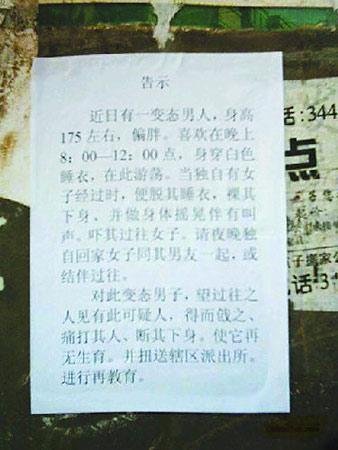 告示
近日有一变态男人，身高
175左右，偏胖。喜欢在晚上
8：00—12：00点，身穿白色
睡衣，在此游荡。当独自有女
子经过时，便脱其睡衣，裸其
下身、并做身体摇晃伴有叫
声。吓其过往女子。请夜晚独
自回家女子同其男友一起，或
结伴过往。
对此变态男子，望过往之
人见有此可疑人，得而戗之、
痛打其人、断其下身。使它再
无生育。并扭送辖区派出所。
进行再教育。
话:344
点
子搬家公
话-3